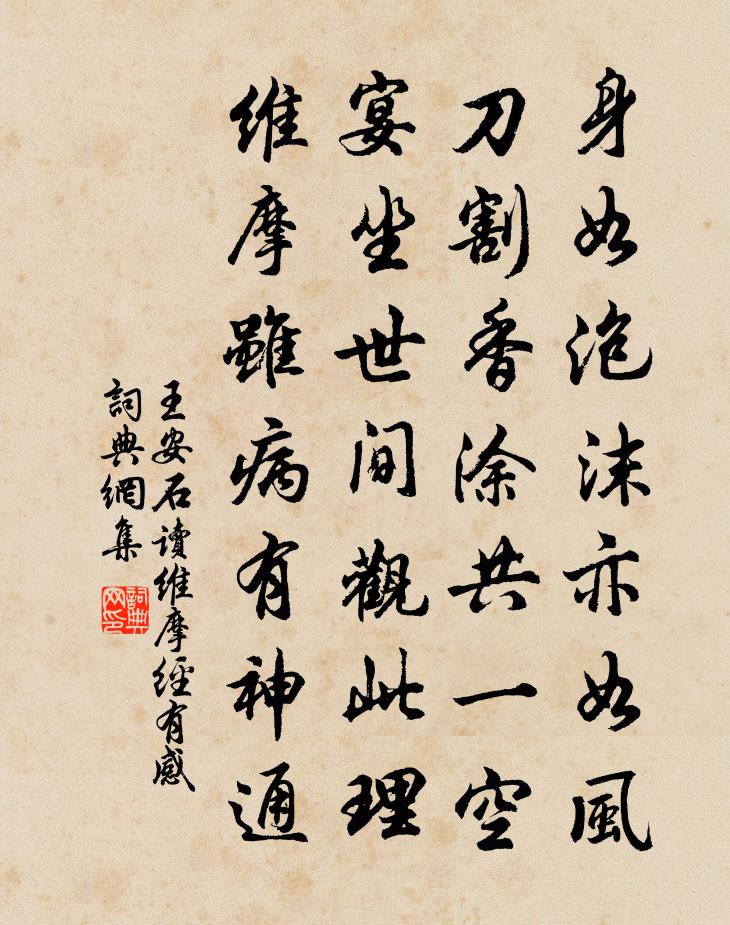 身如泡沫亦如風
刀割香涂共一空
宴坐世間觀此理
維摩雖病有神通
王安石讀維摩經有感
詞典網集
詞典
网印